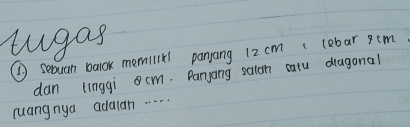 tugas
① sebuah balok memiliki panjang 12 cm, lebar 9 cm.
dan tinggi 8 cm. Panjang salah satu diagonal
ruangnya adalah .....